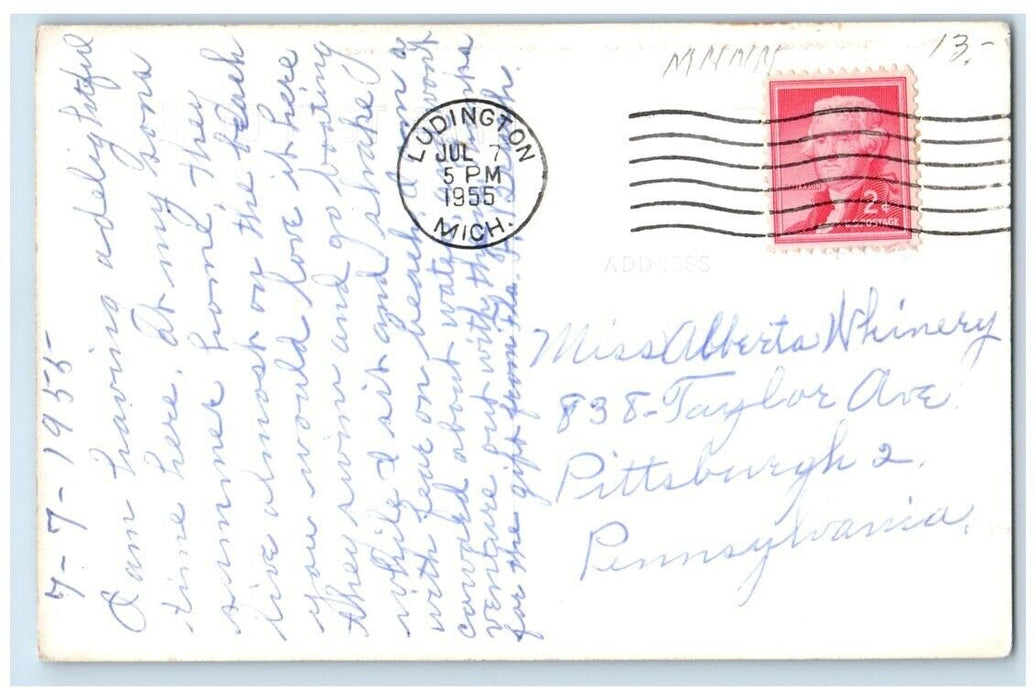 7-7-1955-
I am having a delightful
time here, at my sons
summer home. They
live almost on the beach
you would love it here
they swim and go boating
while I sit and shake
with fear on beach. I am a
coward about water &
venture out with them
for the gift from
MNNN
13.-
LUDINGTON
JUL 7
5 PM
1955
MICH.
2¢
U.S. POSTAGE
ADDRESS
Miss Alberta Whinery
838-Taylor Ave
Pittsburgh 2,
Pennsylvania.